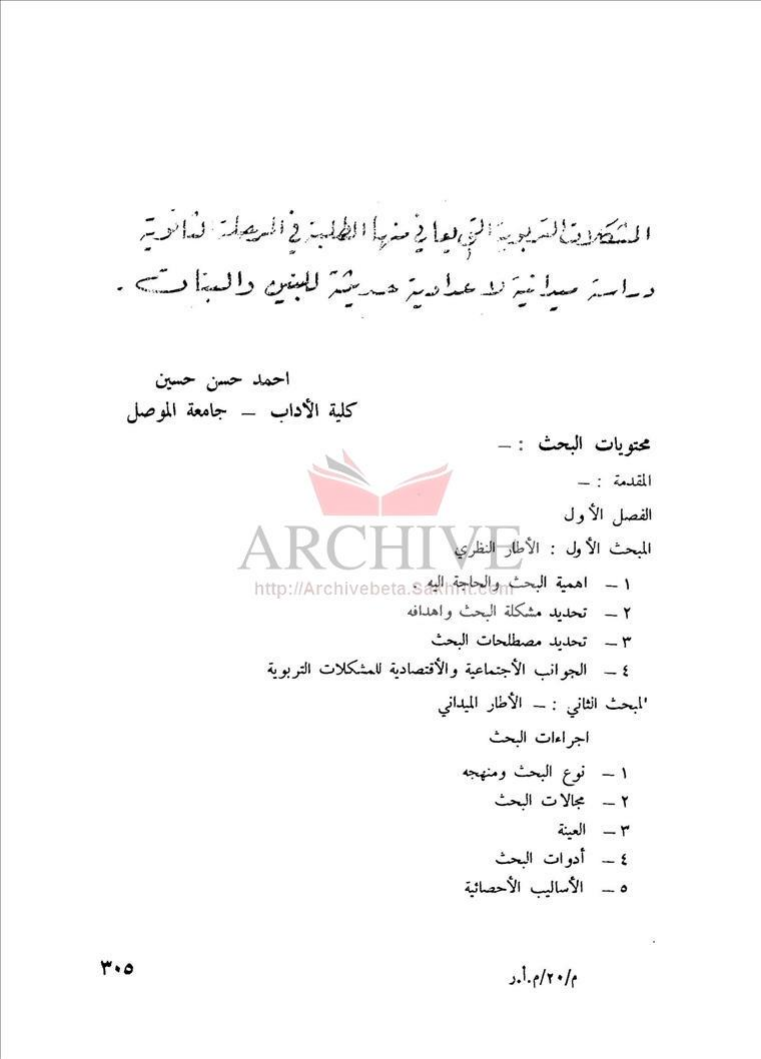 المشكلات التربوية التي يعاني منها الطلبة في المرحلة الثانوية
دراسة ميدانية لاعدادية حديثة للبنين والبنات .
احمد حسن حسين
كلية الأداب – جامعة الموصل
محتويات البحث : –
المقدمة : –
الفصل الأول
المبحث الأول : الأطار النظري
١ – اهمية البحث والحاجة اليه .
٢ – تحديد مشكلة البحث واهدافه
٣ – تحديد مصطلحات البحث
٤ – الجوانب الأجتماعية والأقتصادية للمشكلات التربوية
المبحث الثاني : – الأطار الميداني
اجراءات البحث
١ – نوع البحث ومنهجه
٢ – مجالات البحث
٣ – العينة
٤ – أدوات البحث
٥ – الأساليب الأحصائية
م/٢٠/م.أ.ر
٣٠٥
ARCHIVE
http://Archivebeta.Sakhrit.com